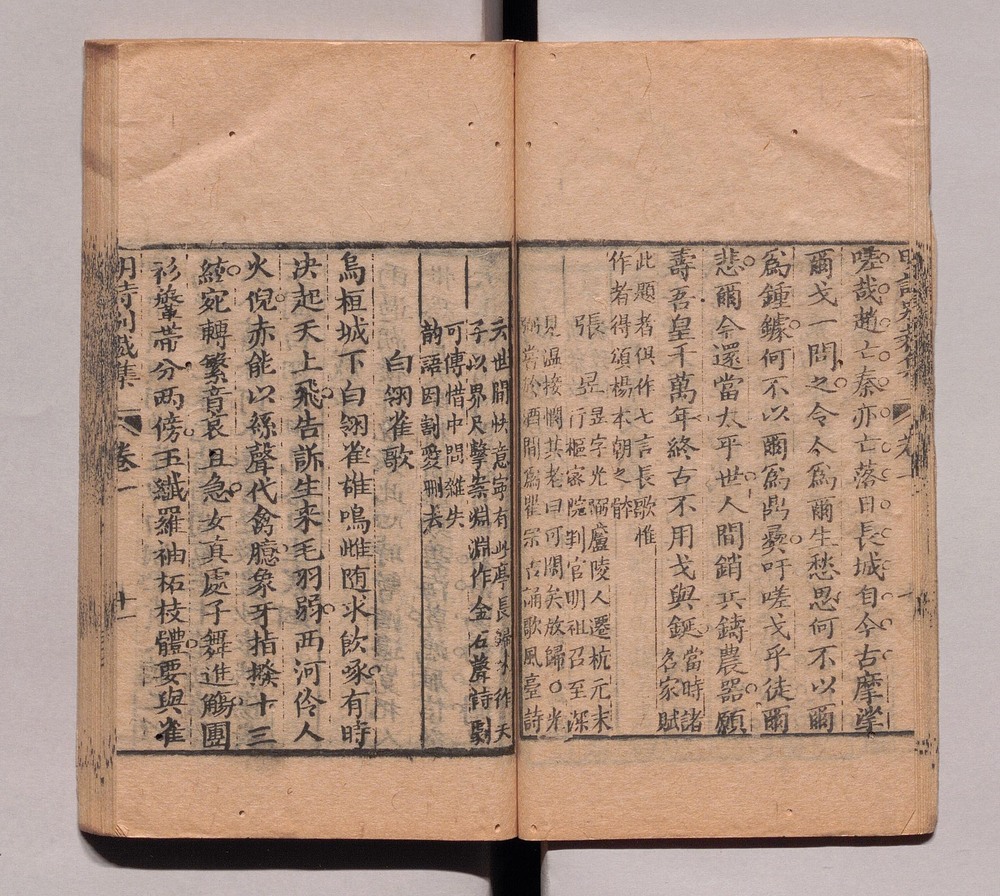 嗟哉趙亡秦亦亡落日長城自今古摩挲
爾戈一問之令今爲爾生愁思何不以爾
爲鍾鐻何不以爾爲鼎彞吁嗟戈乎徒爾
悲爾今還當太平世人間銷兵鑄農器願
壽吾皇千萬年終古不用戈與鋋當時諸
名家賦
此題者俱作七言長歌惟
作者得頌楊本朝之體
張昱昱字光弼廬陵人遷杭元末
行樞密院判官明祖召至深
見温悛憫其老曰可閑矣放歸○光
弼嘗於酒間爲瞿宗吉誦歌風臺詩
云世間快意寧有此亭長歸來作天
子以界尺擊案淵淵作金石聲詩劇
可傳惜中間雜失
韵語因割愛删去
白翎雀歌
烏桓城下白翎雀雄鳴雌随求飲啄有時
决起天上飛告訴生来毛羽弱西河伶人
火倪赤能以絲聲代禽臆象牙指撥十三
絃宛轉繁音哀且急女真處子舞進觴團
衫鞶帶分兩傍玉纎羅袖柘枝體要與雀
明詩别裁集
卷一
十一